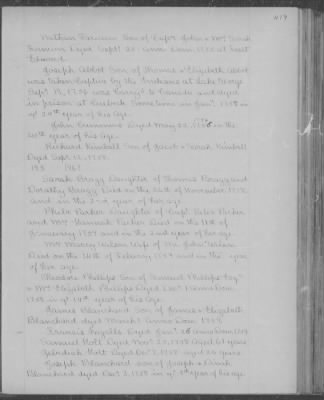 Nathan Parmun Son of Capt John & Mrs Sarah
Dyed Sept 20 Ann Dom 1755 at Fort
Edward.
Joseph Abbot Son of Thomas & Elizabeth Abbot
was taken Captive by the Indians at Lake George
Sept 19, 1756 was Carry'd to Canada and dyed
in prison at Quebeck Sometime in Jan'y 1758 in
ye 24th year of his Age.
John Cummins Dyed May 22, in the
year of his Age.
Richard Kimball Son of Jacob & Sarah Kimball
Dyed Sept 12, 1758.
Sarah Bragg Daughter of Thomas Bragg and
Dorothy Bragg Died on the 26th of November 1752
and in the 2nd year of her age
Daughter of Capt Peter Parker
and Mrs Hannah Parker Died on the 11th of
January 1759 and in the 2nd year of her age
Mrs Marcy Wilson Wife of Mr John Wilson
Died on the 26th of Febuary 1759 and in the year
of her age.
Theodore Phillips Son of Samuel Phillips Esqr
& Mrs Elizabeth Phillips Dyed Anno Dom
1758 in ye 14th year of his Age.
James Blanchard Son of James & Elizabeth
Blanchard dyed March Anno Dom 1758
Francis Ingalls Dyed Jan'y 26 Anno Dom 1759
Samuel Holt Dyed Nov 20, 1758 Aged 61 years
Zebediah Holt Dyed Octr 2, 1758 aged 20 years
Joseph Blanchard son of Joseph & Dinah
Blanchard dyed Decr 2, 1758 in ye 8th year of his age